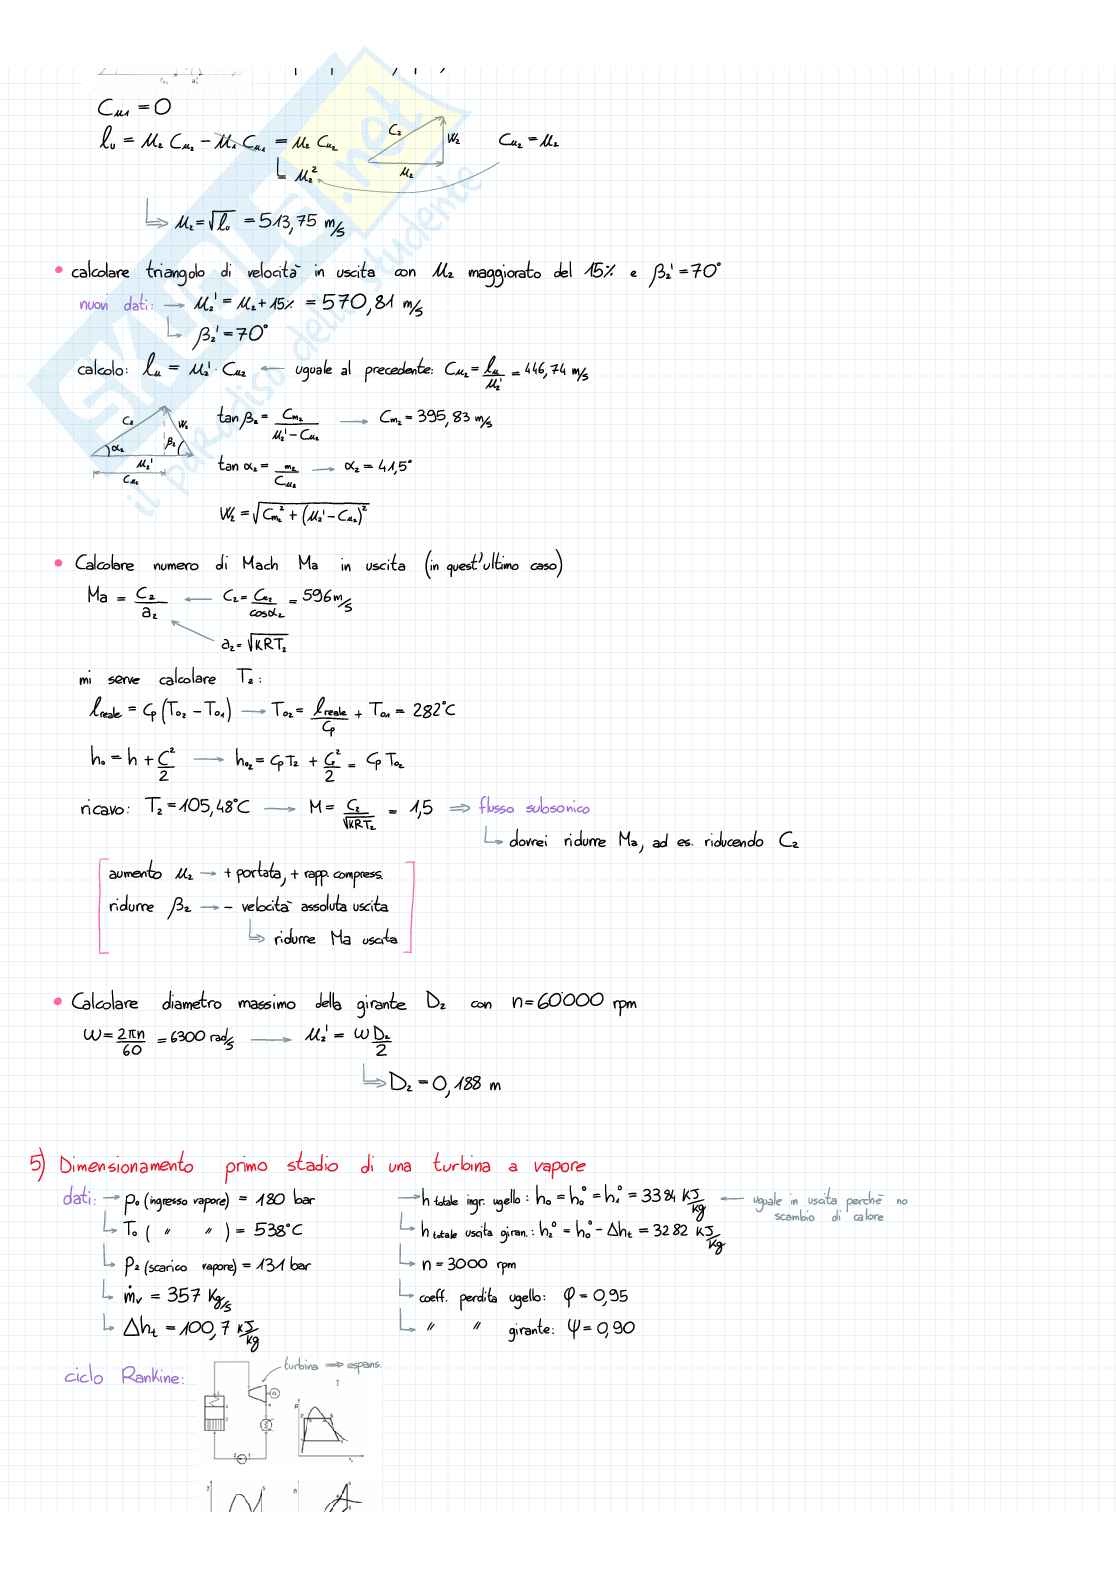 Cu1 = 0
lu = u2 Cu2 - u1 Cu1 = u2 Cu2
C2 W2 u2
Cu2 = u2
= u2²
u2 = √lu = 513,75 m/s
• calcolare triangolo di velocità in uscita con u2 maggiorato del 15% e β2' = 70°
nuovi dati: → u2' = u2 + 15% = 570,81 m/s
β2' = 70°
calcolo: lu = u2' · Cu2 ← uguale al precedente: Cu2 = lu/u2' = 446,74 m/s
C2 W2 α2 β2 u2' Cu2
tan β2 = Cm2/(u2' - Cu2) → Cm2 = 395,83 m/s
tan α2 = m2/Cu2 → α2 = 41,5°
W2 = √(Cm2² + (u2' - Cu2)²)
• Calcolare numero di Mach Ma in uscita (in quest'ultimo caso)
Ma = C2/a2 ← C2 = Cu2/cosα2 = 596 m/s
a2 = √KRT2
mi serve calcolare T2:
lreale = Cp (T02 - T01) → T02 = lreale/Cp + T01 = 282°C
h0 = h + C²/2 → h02 = Cp T2 + C2²/2 = Cp T02
ricavo: T2 = 105,48°C → M = C2/√KRT2 = 1,5 ⇒ flusso subsonico
↳ dovrei ridurre Ma, ad es. riducendo C2
aumento u2 → + portata, + rapp. compress.
ridurre β2 → - velocità assoluta uscita
↳ ridurre Ma uscita
• Calcolare diametro massimo della girante D2 con n = 60'000 rpm
ω = 2πn/60 = 6300 rad/s → u2' = ω D2/2
⇒ D2 = 0,188 m
5) Dimensionamento primo stadio di una turbina a vapore
dati: → p0 (ingresso vapore) = 180 bar
↳ T0 ( " " ) = 538°C
↳ p2 (scarico vapore) = 131 bar
↳ ṁv = 357 Kg/s
↳ Δht = 100,7 KJ/kg
→ h totale ingr. ugello: h0 = h0° = h1° = 3384 KJ/kg ← uguale in uscita perchè no
scambio di calore
↳ h totale uscita giran.: h2° = h0° - Δht = 3282 KJ/kg
↳ n = 3000 rpm
↳ coeff. perdita ugello: φ = 0,95
↳ " " girante: ψ = 0,90
ciclo Rankine:
turbina → espans.
SKUOLA.net
il paradiso dello studente